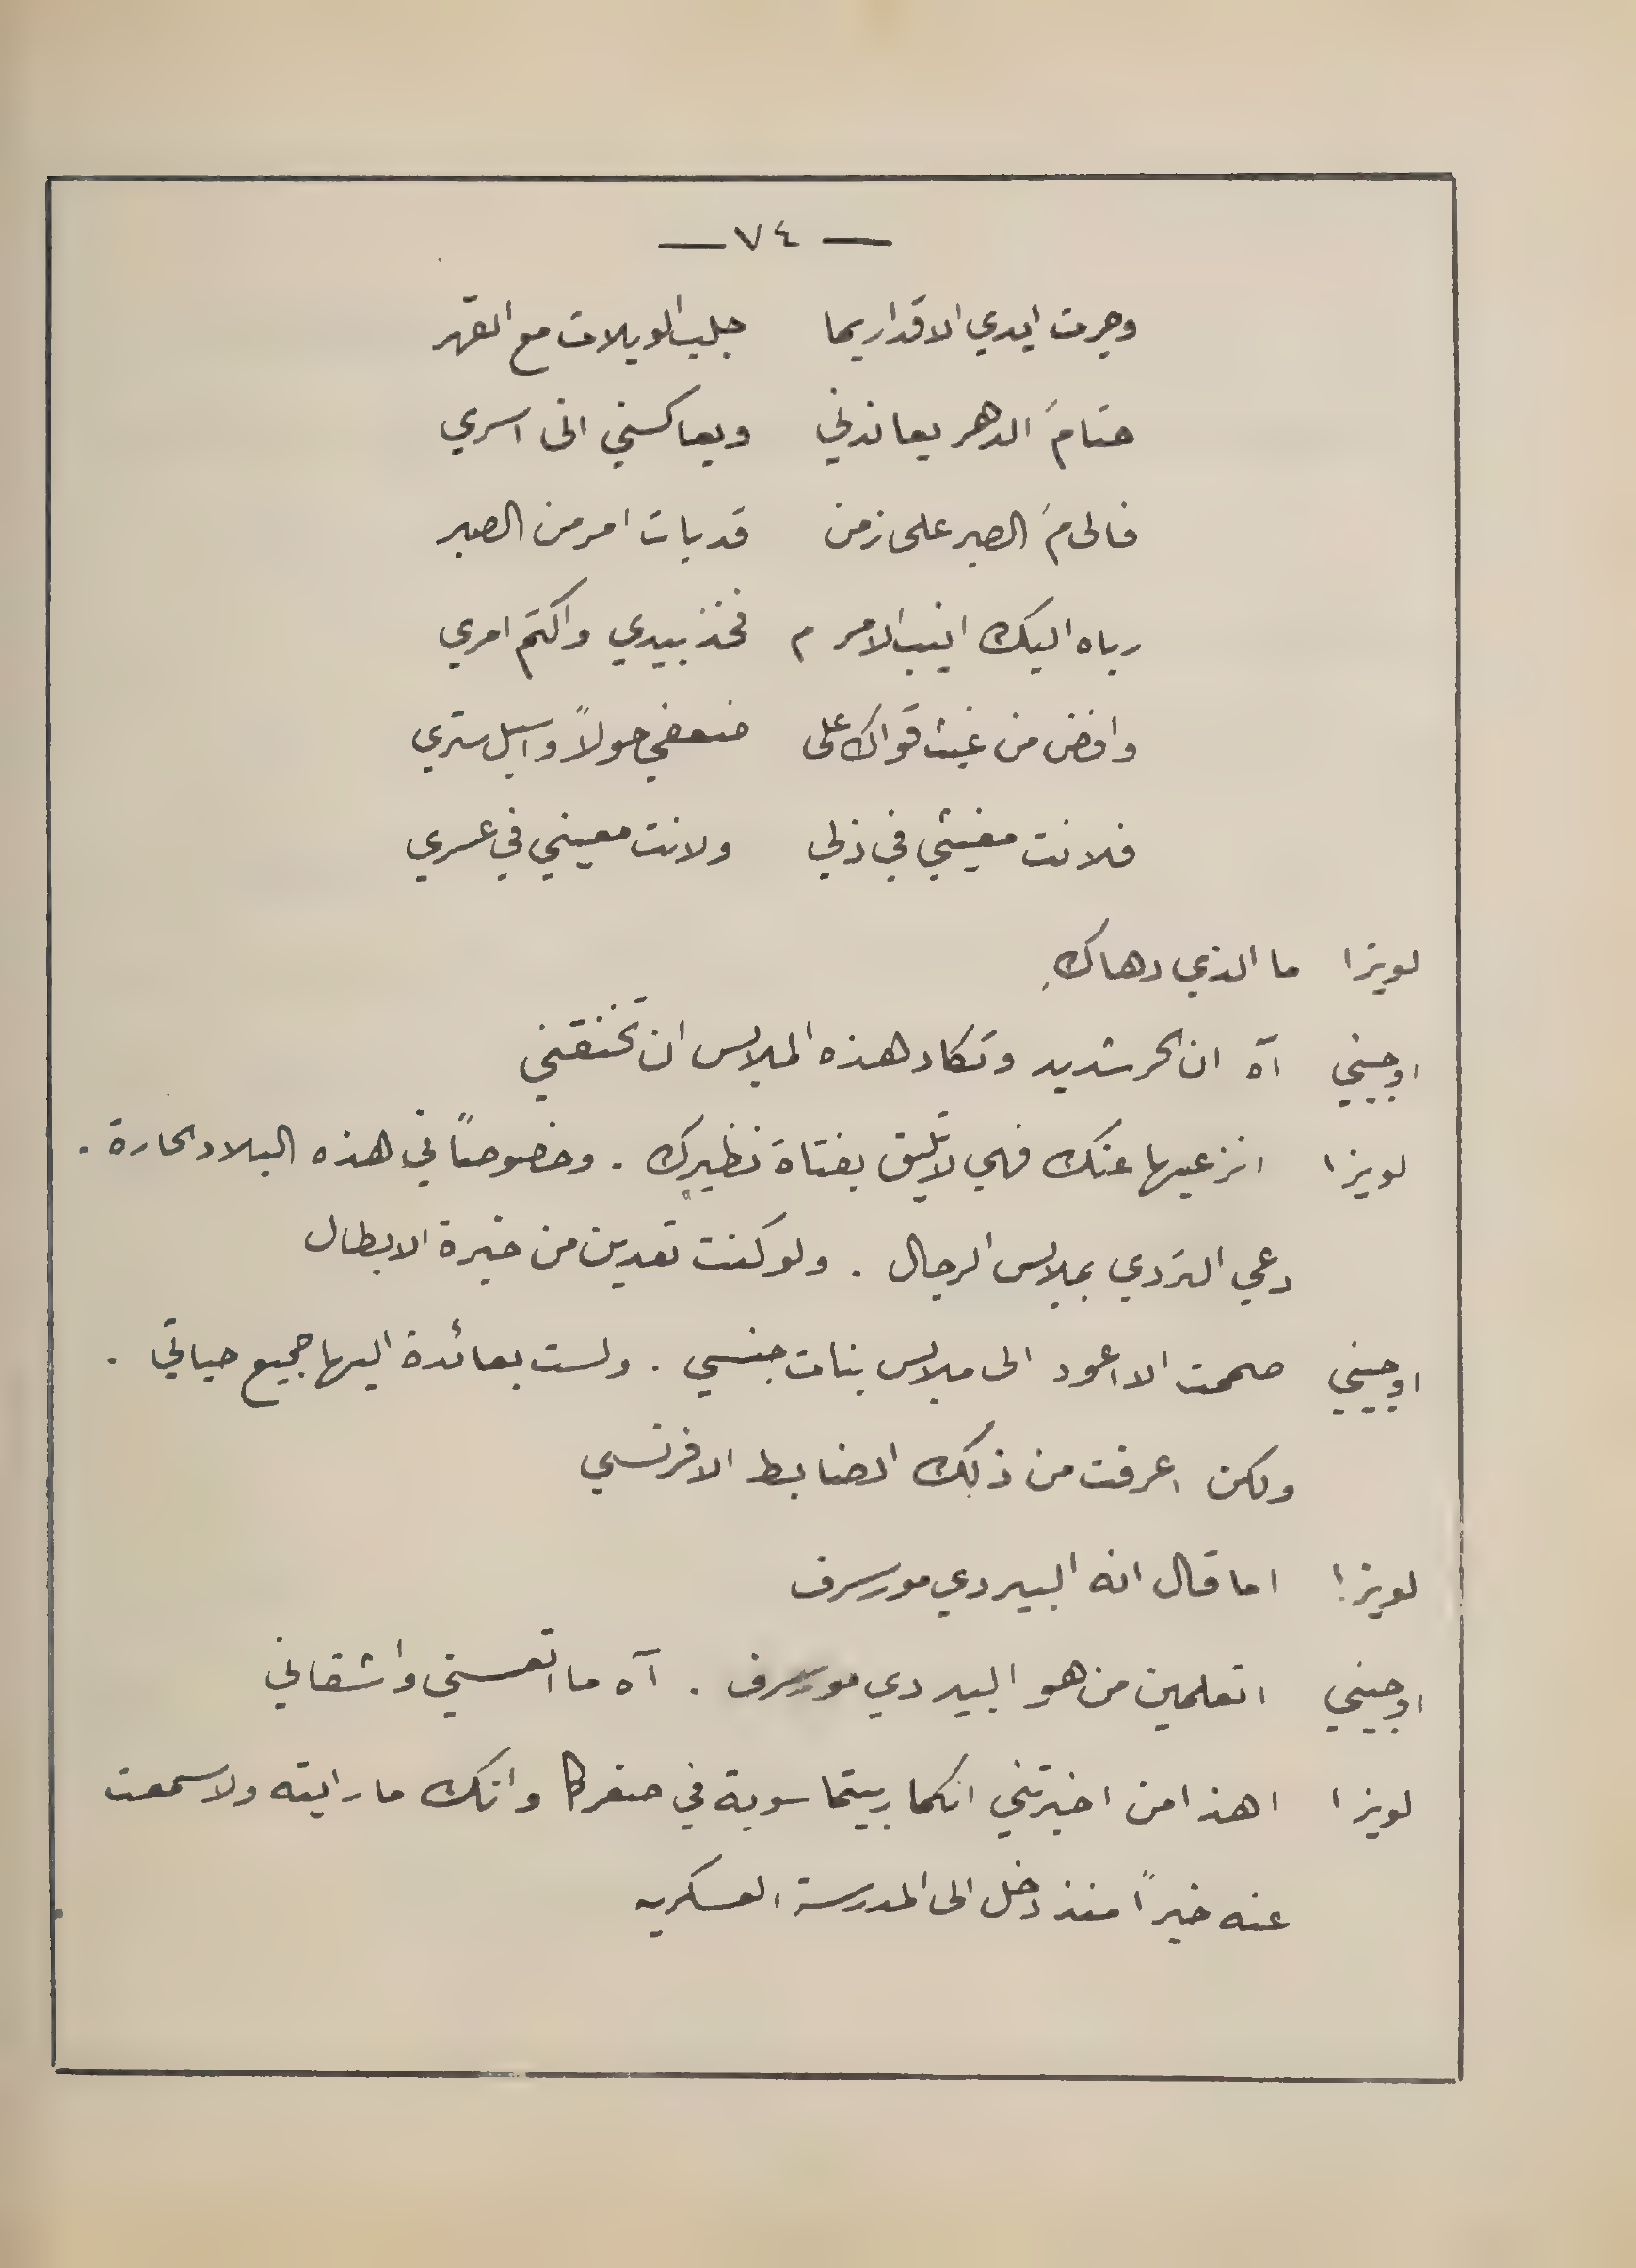 — ٧٤ —
وجرت ايدي الاقدار بما جلب الويلات مع القهر
حتامَ الدهر يعاندني ويعاكسني انى اسري
فالى مَ الصبر على زمن قد بات امر من الصبر
رباه اليك انيب الامر م فخذ بيدي واكتم امري
وافض من غيث قواك على ضعفي حولاً واسبل ستري
فلانت مغيثي في ذلي ولانت معيني في عسري
لويزا ما الذي دهاكِ
اوجيني آه ان الحر شديد وتكاد هذه الملابس ان تخنقني
لويزا انزعيها عنك فهي لا تليق بفتاة نظيرك . وخصوصاً في هذه البلاد الحارة .
دعي التردي بملابس الرجال . ولو كنت تعدين من خيرة الابطال
اوجيني صممت الا اعود الى ملابس بنات جنسي . ولست بعائدة اليها جميع حياتي .
ولكن اعرفت من ذلك الضابط الافرنسي
لويزا اما قال انه البير دي مورسرف
اوجيني اتعلمين من هو البير دي مورسرف . آه ما اتعسني واشقاني
لويزا اهذا من اخبرتني انكما ربيتما سوية في صغركما وانك ما رايته ولا سمعت
عنه خبراً منذ دخل الى المدرسة العسكريه